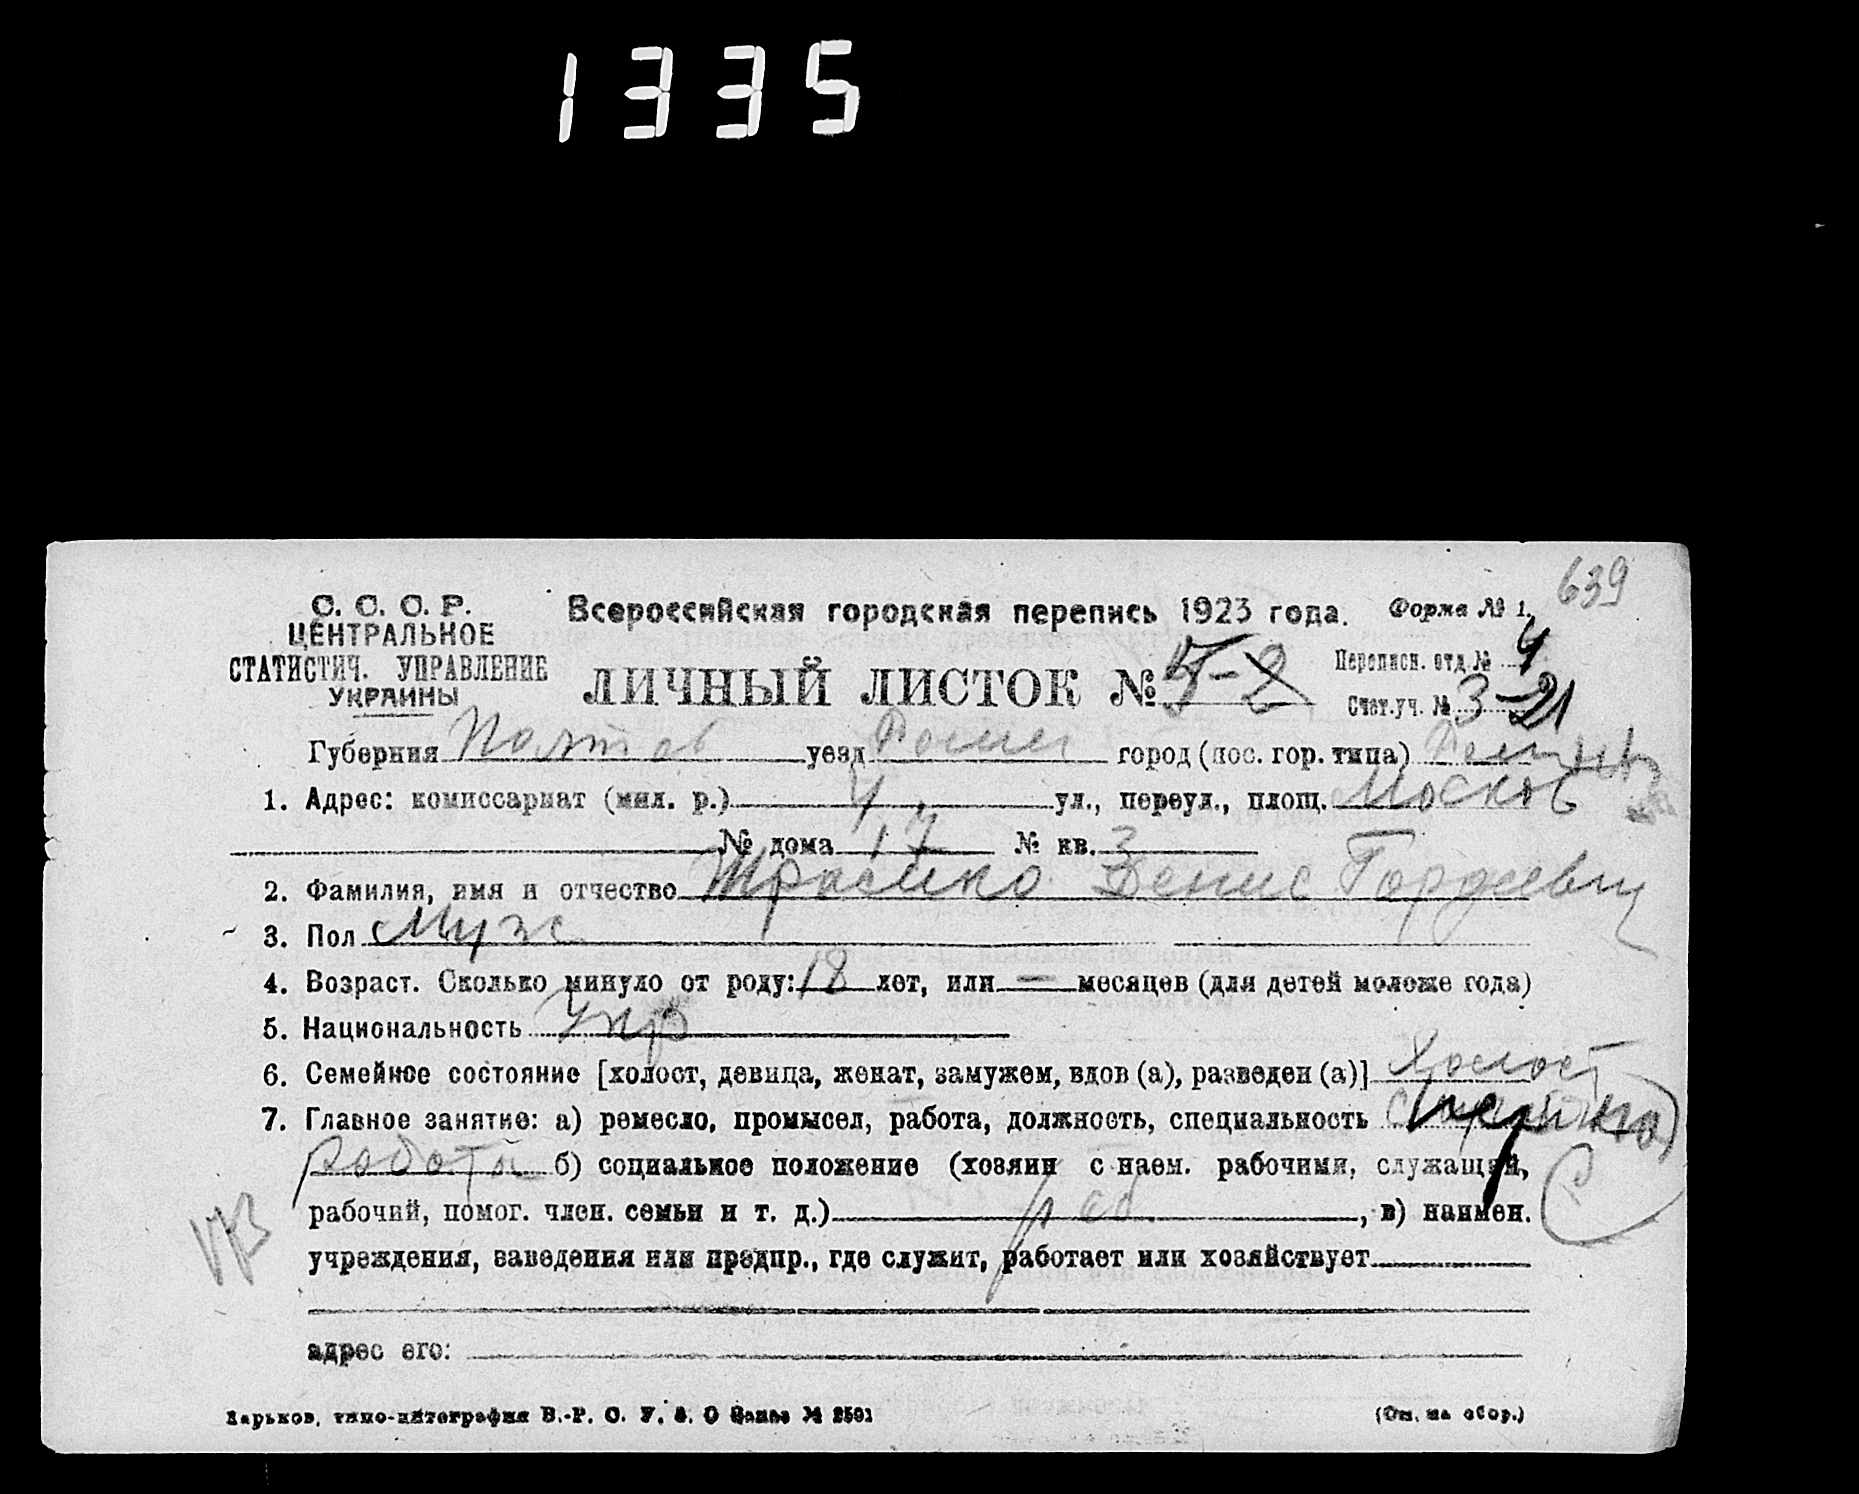 1335
639
С. С. С. Р.
ЦЕНТРАЛЬНОЕ
СТАТИСТИЧ. УПРАВЛЕНИЕ
УКРАИНЫ
Всероссийская городская перепись 1923 года. Форма № 1.
ЛИЧНЫЙ ЛИСТОК № 5-2
Переписн. отд. № 4
Счет. уч. № 3-21
Губерния Полтав уезд Ромен город (пос. гор. типа) Ромны
1. Адрес: комиссариат (мил. р.) 4 ул., переул., площ. Москов
№ дома 17 № кв. 3
2. Фамилия, имя и отчество Денис Гордеевич
3. Пол Муж
4. Возраст. Сколько минуло от роду: 18 лет, или — месяцев (для детей моложе года)
5. Национальность Укр
6. Семейное состояние [холост, девица, женат, замужем, вдов (а), разведен (а)] Холост
7. Главное занятие: а) ремесло, промысел, работа, должность, специальность
работа б) социальное положение (хозяин с наем. рабочими, служащий,
рабочий, помог. член. семьи и т. д.) раб. , в) наимен.
учреждения, заведения или предпр., где служит, работает или хозяйствует
адрес его:
Харьков, типо-литография В.-Р. О. У. З. О Заказ № 2591 (См. на обор.)